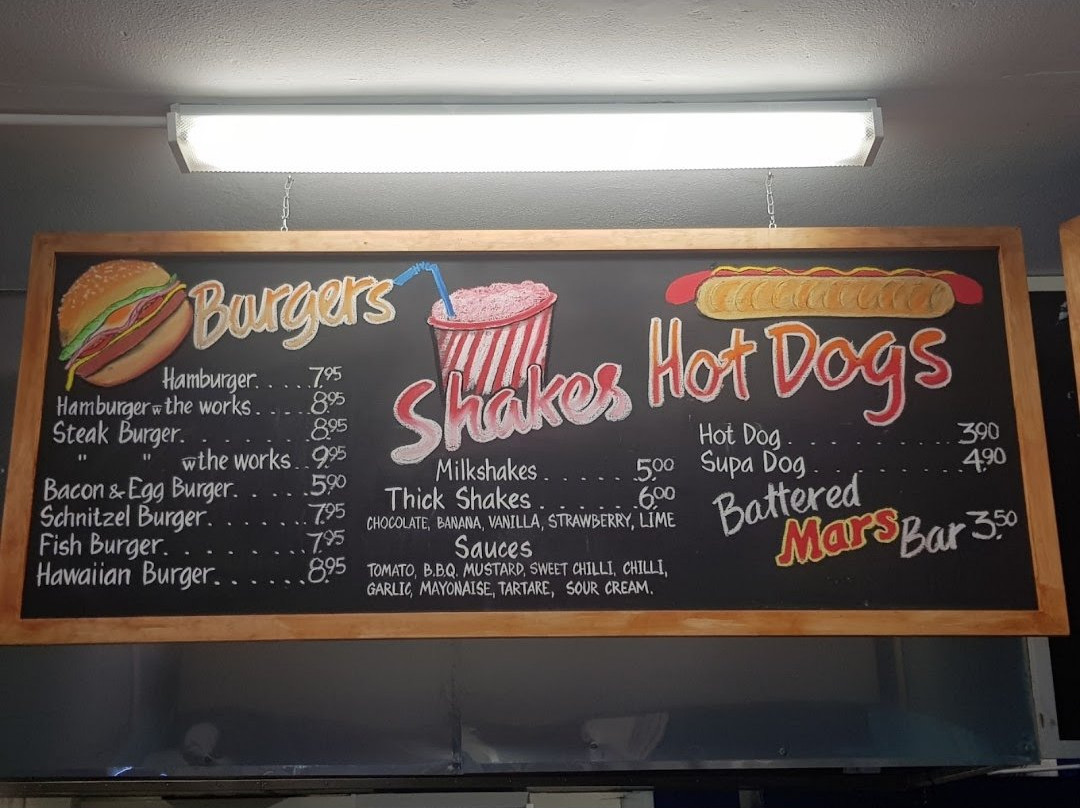 Burgers
Hamburger.....7.95
Hamburger w the works....8.95
Steak Burger........8.95
" " w the works..9.95
Bacon & Egg Burger.....5.90
Schnitzel Burger.......7.95
Fish Burger.........7.95
Hawaiian Burger......8.95
Shakes
Milkshakes........5.00
Thick Shakes.......6.00
CHOCOLATE, BANANA, VANILLA, STRAWBERRY, LIME
Sauces
TOMATO, B.B.Q. MUSTARD, SWEET CHILLI, CHILLI,
GARLIC, MAYONAISE, TARTARE, SOUR CREAM.
Hot Dogs
Hot Dog.............3.90
Supa Dog...........4.90
Battered
Mars Bar 3.50